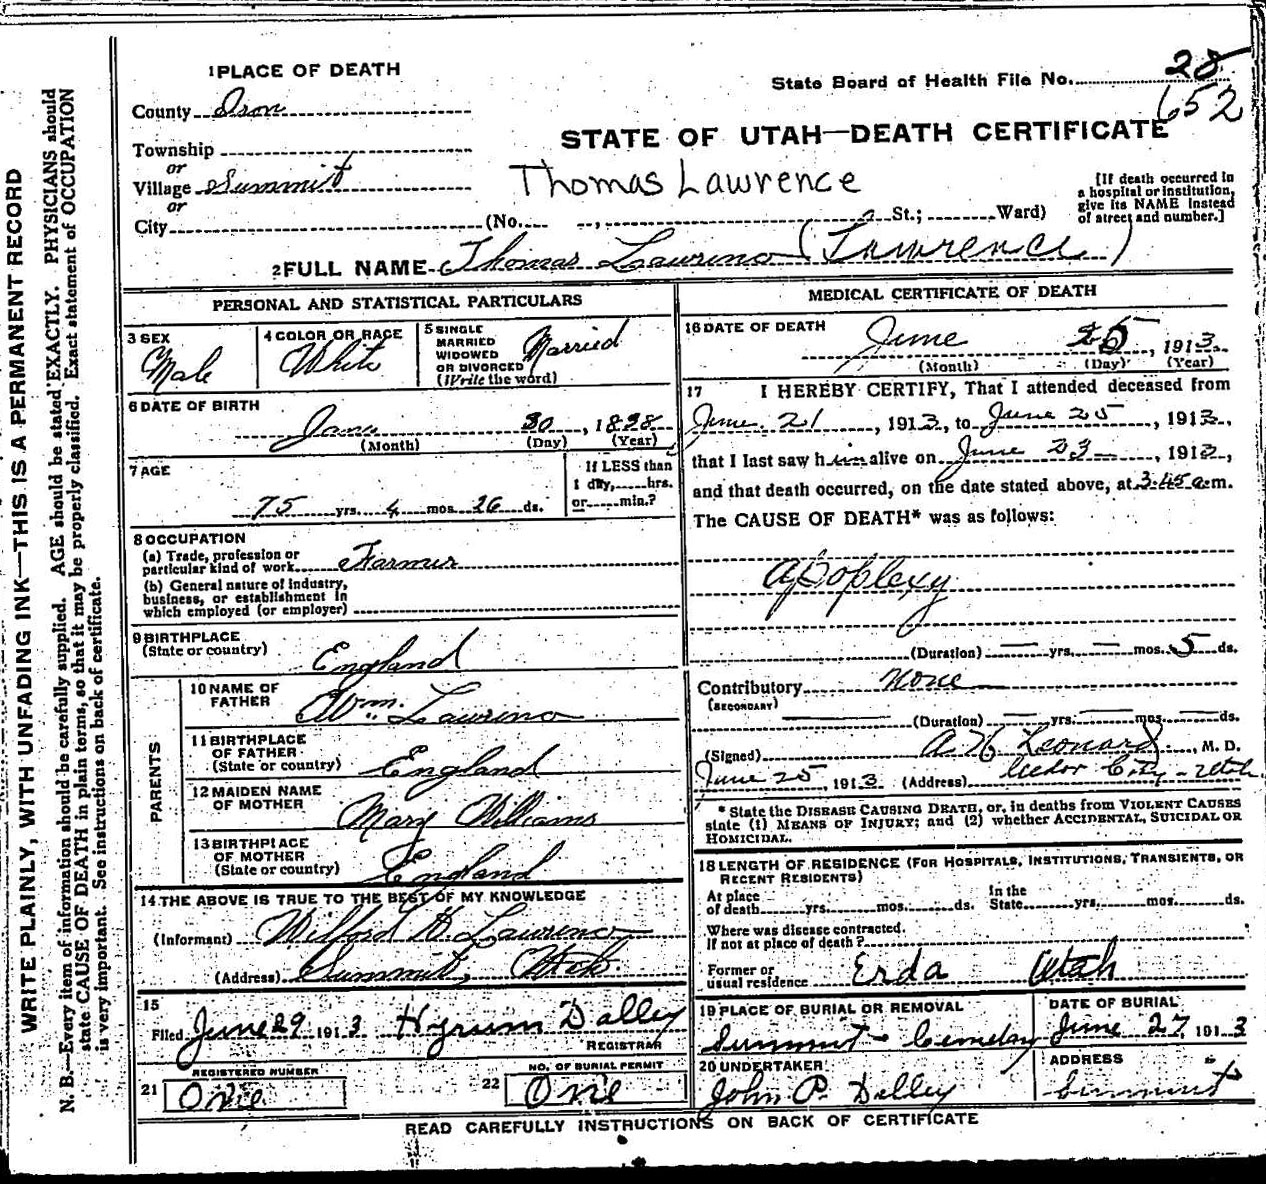 WRITE PLAINLY, WITH UNFADING INK—THIS IS A PERMANENT RECORD
N. B.—Every item of information should be carefully supplied. AGE should be stated EXACTLY. PHYSICIANS should
state CAUSE OF DEATH in plain terms, so that it may be properly classified. Exact statement of OCCUPATION
is very important. See instructions on back of certificate.
1 PLACE OF DEATH
County Iron
Township
or
Village Summit
or
City (No. St.; Ward)
State Board of Health File No. 28
652
STATE OF UTAH—DEATH CERTIFICATE
Thomas Lawrence
[If death occurred in
a hospital or institution,
give its NAME instead
of street and number.]
2 FULL NAME Thomas Laurence (Lawrence)
PERSONAL AND STATISTICAL PARTICULARS
3 SEX
Male
4 COLOR OR RACE
White
5 SINGLE
MARRIED
WIDOWED
OR DIVORCED
(Write the word)
Married
6 DATE OF BIRTH
Jan 30, 1838
(Month) (Day) (Year)
7 AGE
75 yrs. 4 mos. 26 ds.
If LESS than
1 day, hrs.
or min.?
8 OCCUPATION
(a) Trade, profession or
particular kind of work Farmer
(b) General nature of industry,
business, or establishment in
which employed (or employer)
9 BIRTHPLACE
(State or country)
England
PARENTS
10 NAME OF
FATHER
Wm. Laurence
11 BIRTHPLACE
OF FATHER
(State or country)
England
12 MAIDEN NAME
OF MOTHER
Mary Williams
13 BIRTHPLACE
OF MOTHER
(State or country)
England
14 THE ABOVE IS TRUE TO THE BEST OF MY KNOWLEDGE
(Informant) Wilford W. Laurence
(Address) Summit, Utah
15
Filed June 29 1913 Hyrum Dalley
REGISTRAR
21 REGISTERED NUMBER
One
22 NO. OF BURIAL PERMIT
One
MEDICAL CERTIFICATE OF DEATH
16 DATE OF DEATH
June 25, 1913
(Month) (Day) (Year)
17 I HEREBY CERTIFY, That I attended deceased from
June 21, 1913, to June 25, 1913,
that I last saw him alive on June 23, 1913,
and that death occurred, on the date stated above, at 3:45 a.m.
The CAUSE OF DEATH* was as follows:
Apoplexy
(Duration) — yrs. — mos. 5 ds.
Contributory none
(SECONDARY)
(Duration) — yrs. — mos. — ds.
(Signed) A N Leonard, M. D.
June 25, 1913 (Address) Cedar City - Utah
* State the DISEASE CAUSING DEATH, or, in deaths from VIOLENT CAUSES
state (1) MEANS OF INJURY; and (2) whether ACCIDENTAL, SUICIDAL OR
HOMICIDAL.
18 LENGTH OF RESIDENCE (FOR HOSPITALS, INSTITUTIONS, TRANSIENTS, OR
RECENT RESIDENTS)
At place
of death yrs. mos. ds.
In the
State yrs. mos. ds.
Where was disease contracted.
If not at place of death?
Former or
usual residence Erda Utah
19 PLACE OF BURIAL OR REMOVAL
Summit Cemetery
DATE OF BURIAL
June 27, 1913
20 UNDERTAKER
John P. Dalley
ADDRESS
Summit
READ CAREFULLY INSTRUCTIONS ON BACK OF CERTIFICATE